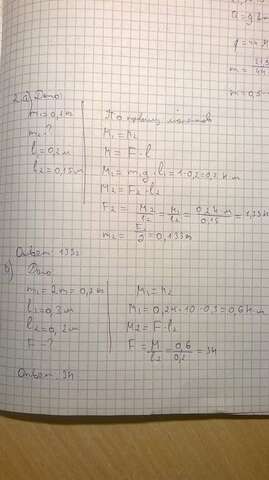 2 а) Дано:
m₁ = 0,1кг
m₂?
l₁ = 0,2м
l₂ = 0,15м
По правилу моментов
M₁ = M₂
M = F · l
M₁ = m₁g · l₁ = 1 · 0,2 = 0,2 Н м
M₂ = F₂ · l₂
F₂ = M₂/l₂ = M₁/l₂ = 0,2 Н м/0,15 = 1,33Н
m₂ = F₂/g = 0,133
Ответ: 133г
б) Дано
m₁ = 2m = 0,2кг
l₁ = 0,3м
l₂ = 0,2м
F - ?
M₁ = M₂
M₁ = 0,2кг · 10 · 0,3 = 0,6 Н м
M₂ = F · l₂
F = M/l₂ = 0,6/0,2 = 3Н
Ответ: 3Н